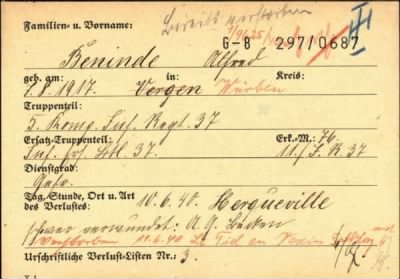 Bereits verstorben
Familien- u. Vorname:
G-B 297/0687
Beninde Alfred
geb. am: in: Kreis:
7.8.1917. Bergen
Truppenteil:
5. Komp. Inf. Regt. 37
Ersatz-Truppenteil: Erk.-M.: 76.
Inf. Ers. Btl. 37. 11./I.R.37
Dienstgrad:
Gefr.
Tag, Stunde, Ort u. Art des Verlustes:
10.6.40. Hergueville
schwer verwundet: A.G. Becken
Verstorben 10.6.40
Urschriftliche Verlust-Listen Nr.: 3